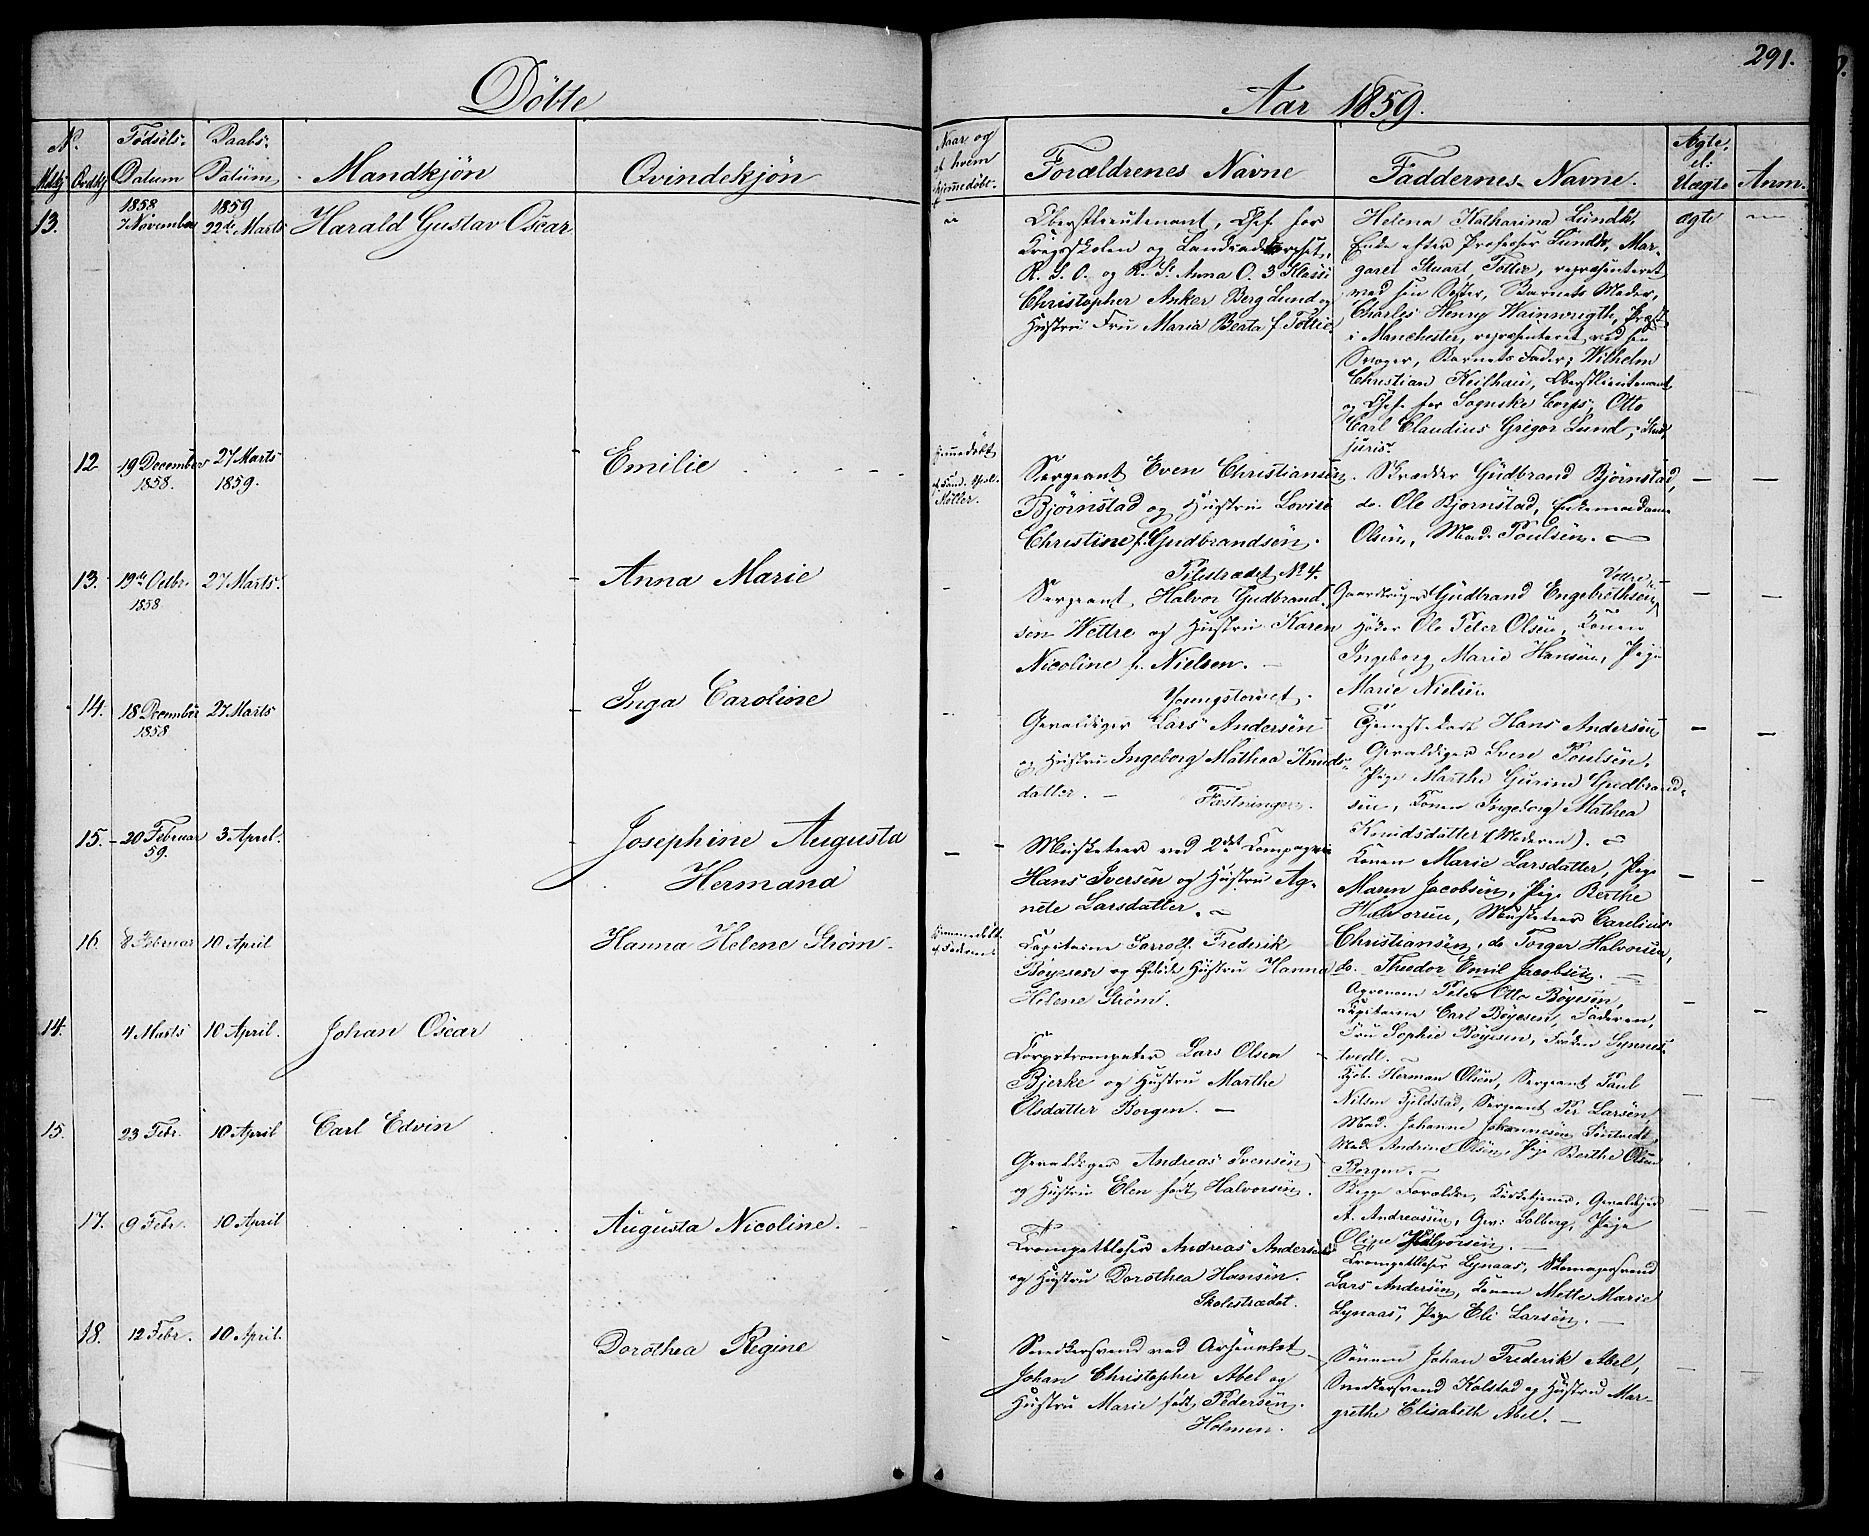 291.
Döbte
Aar 1859.
No.
Mdkj Qvdkj
Fødsels- Datum
Daabs- Datum
Mandkjön
Qvindekjön
Naar og af hvem hjemmedøbt
Forældrenes Navne
Faddernes Navne.
Ægte el: Uægte
Anm.
13.
1858
7 November
1859
22de Marts
Harald Gustav Oscar
Oberstlieutenant, Chef for
Krigsskolen og Landcadetcorpset,
R. S. O. og R. St Anna O. 3 Klasse
Christopher Anker Berg Lund og
Hustru Fru Maria Beata f. Tottie.
Helena Katharina Lundh,
Enke efter Professor Lundh, Mar-
garet Stuart Tottie, repræsenteret
ved sin Søster, Barnets Moder,
Charles Henry Wainwrigth, Præst
i Manchester, repræsenteret ved sin
Svoger, Barnets Fader; Wilhelm
Christian Keilhau, Oberstlieutenant
og Chef for Sognske Corps; Otto
Carl Claudius Gregor Lund, Stud.
juris.
ægte
12
19 December
1858.
27 Marts
1859.
Emilie
Hjemmedøbt
af Cand. theol.
Møller.
Sergeant Even Christiansen
Bjørnstad og Hustru Lovise
Christine f. Gudbrandsen.
Pilestrædet No 4.
Skrædder Gudbrand Bjørnstad,
do. Ole Bjørnstad, Enkemadame
Olsen, Mad. Poulsen.
13.
19de Octbr.
1858
27 Marts.
Anna Marie
Sergeant Halvor Gudbrand-
sen Wettre og Hustru Karen
Nicoline f. Nielsen.
Youngstorvet.
Gaardbruger Gudbrand Engebrethsen Vettre,
Ole Peter Olsen, Konen
Ingeborg Marie Hansen, Pige
Marie Nielsen.
14.
18 December
1858
27 Marts
Inga Caroline
Gevaldiger Lars Andersen
og Hustru Ingeborg Mathea Knuds-
datter.
Fæstningen.
Hans Andersen
Gevaldiger Sven Poulsen,
Pige Marthe Gurine Gudbrand-
sen, Konen Ingeborg Mathea
Knudsdatter (Moderen).
15.
20 Februar
59.
3 April.
Josephine Augusta
Hermana
Musketeer ved 2det Compagnie
Hans Iversen og Hustru Ag-
nete Larsdatter.
Konen Marie Larsdatter, Pige
Maren Jacobsen, Pige Berthe
Halvorsen, Musketeer Carelius
Christiansen, do. Torger Halvorsen,
do. Theodor Emil Jacobsen.
16.
8 Februar
10 April
Hanna Helene Strøm
Hjemmedøbt
af Faderen
Capitaine Frederik
Bøyesen og Hustru Hanna
Helene Strøm.
Agronom Peter Otto Bøyesen,
Capitaine Carl Bøyesen, Faderen,
Fru Sophie Bøyesen, Frøken Synnest-
vedt.
14.
4 Marts
10 April.
Johan Oscar
Corpstrompeter Lars Olsen
Bjerke og Hustru Marthe
Olsdatter Borgen.
Herman Olsen, Sergeant Paul
Nilsen Fjeldstad, Sergeant Per Larsen,
Mad. Johanne Johannesen
Mad. Andrine Olsen, Pige Berthe Olsen
Borgen.
15.
23 Febr.
10 April
Carl Edvin
Gevaldiger Andreas Svensen
og Hustru Elen født Halvorsen.
Begge Forældre, Kirketjener, Gevaldiger
A. Andreassen, Gev: Solberg, Pige
Oline Halvorsen.
17.
9 Febr.
10 April
Augusta Nicoline.
Trompetblæser Andreas Andersen
og Hustru Dorothea Hansen.
Skolestrædet.
Trompetblæser Lynaas, Skomagersvend
Lars Andersen, Konen Mette Marie
Lynaas, Pige Eli Larsen.
18.
12 Febr.
10 April.
Dorothea Regine
Snedkersvend ved Arsenalet
Johan Christopher Abel og
Hustru Marie født Pedersen.
Holmen.
Sønnen Johan Frederik Abel,
Snedkersvend Kolstad og Hustru Mar-
grethe Elisabeth Abel.